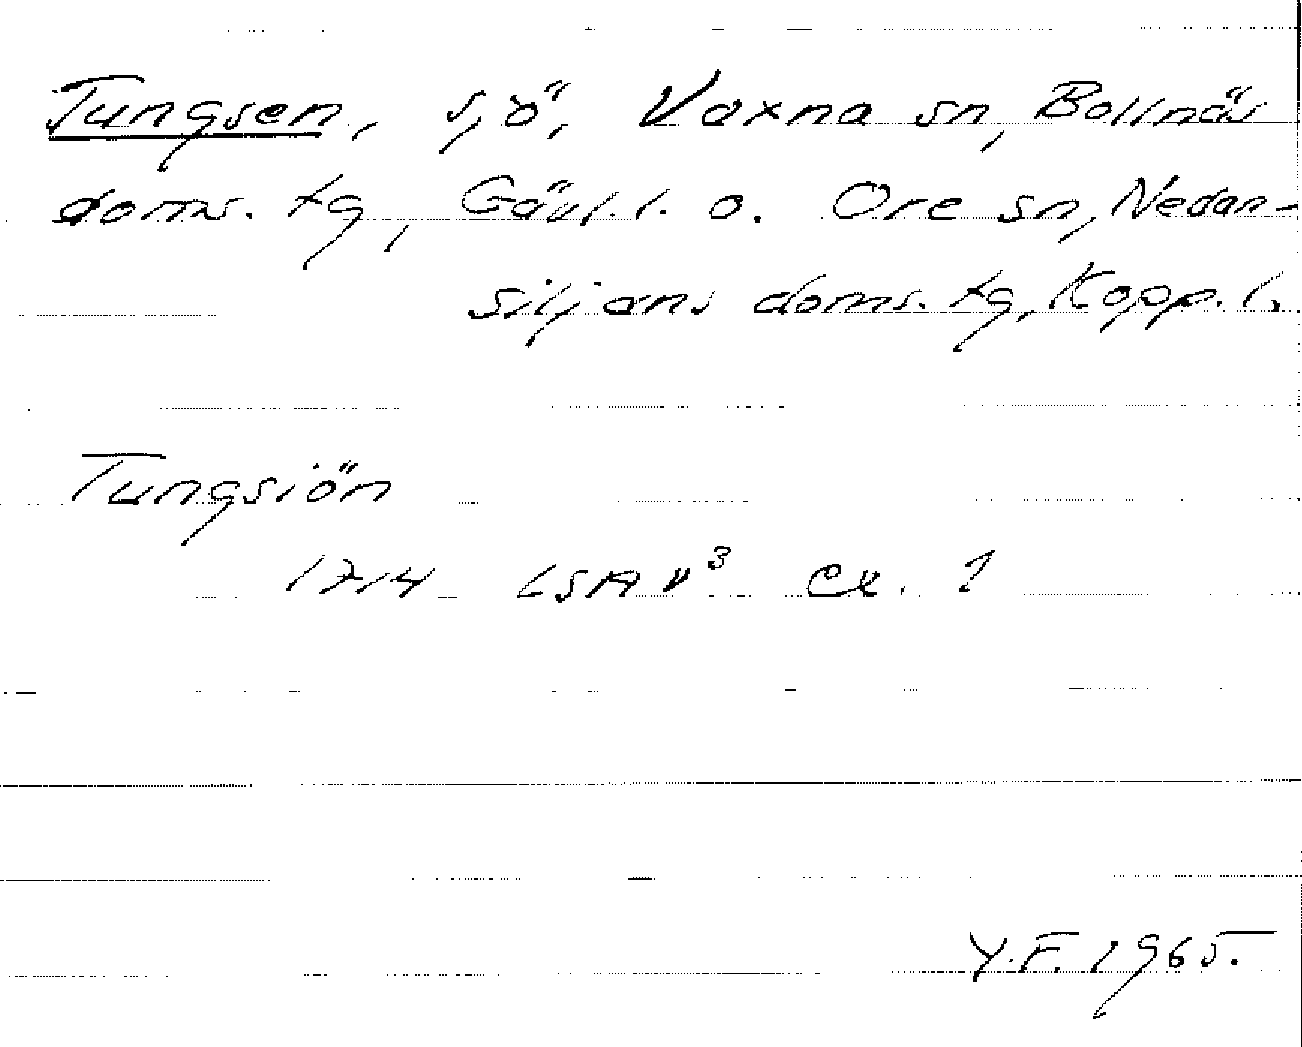 Tungsen, sjö, Voxna sn, Bollnäs
doms. tg, Gävl. l. o. Ore sn, Nedan-
siljans doms. tg, Kopp. l.
Tungsiön
1714 LSA v³ ex. 1
Y.F. 1965.